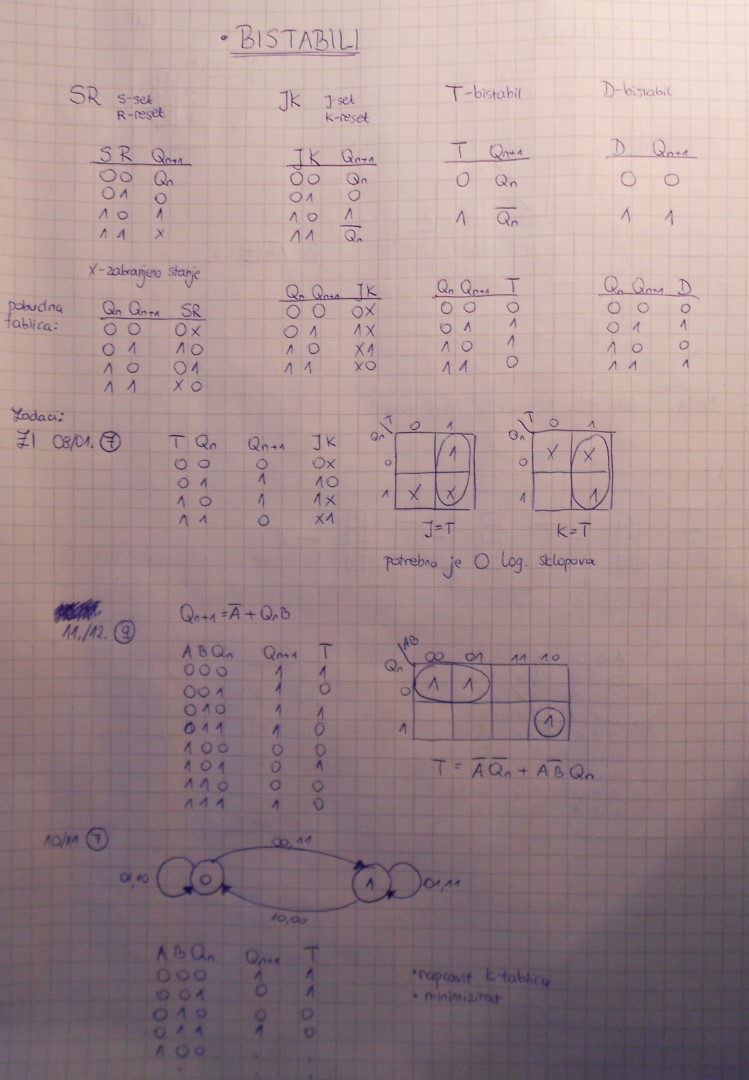 • BISTABILI
SR S-set
R-reset
JK J-set
K-reset
T-bistabil
D-bistabil
S R Qn+1
0 0 Qn
0 1 0
1 0 1
1 1 X
X-zabranjeno stanje
J K Qn+1
0 0 Qn
0 1 0
1 0 1
1 1 Q̅n
T Qn+1
0 Qn
1 Q̅n
D Qn+1
0 0
1 1
pobudna
tablica:
Qn Qn+1 SR
0 0 0X
0 1 10
1 0 01
1 1 X0
Qn Qn+1 JK
0 0 0X
0 1 1X
1 0 X1
1 1 X0
Qn Qn+1 T
0 0 0
0 1 1
1 0 1
1 1 0
Qn Qn+1 D
0 0 0
0 1 1
1 0 0
1 1 1
Zadaci:
ZI 08/01. 7
T Qn Qn+1 JK
0 0 0 0X
0 1 1 10
1 0 1 1X
1 1 0 X1
T
Qn 0 1
0 1
1 X X
J=T
T
Qn 0 1
0 X X
1 1
K=T
potrebno je 0 log. sklopova
11./12. 9
Qn+1 = A̅ + QnB
A B Qn Qn+1 T
0 0 0 1 1
0 0 1 1 0
0 1 0 1 1
0 1 1 1 0
1 0 0 0 0
1 0 1 0 1
1 1 0 0 0
1 1 1 1 0
AB
Qn 00 01 11 10
0 1 1
1 1
T = A̅ Q̅n + A B̅ Qn
10/11 7
00,11
01,10 0 1 01,11
10,00
A B Qn Qn+1 T
0 0 0 1 1
0 0 1 0 1
0 1 0 0 0
0 1 1 1 0
1 0 0 . .
. . .
• napravit K-tablicu
• minimizirat